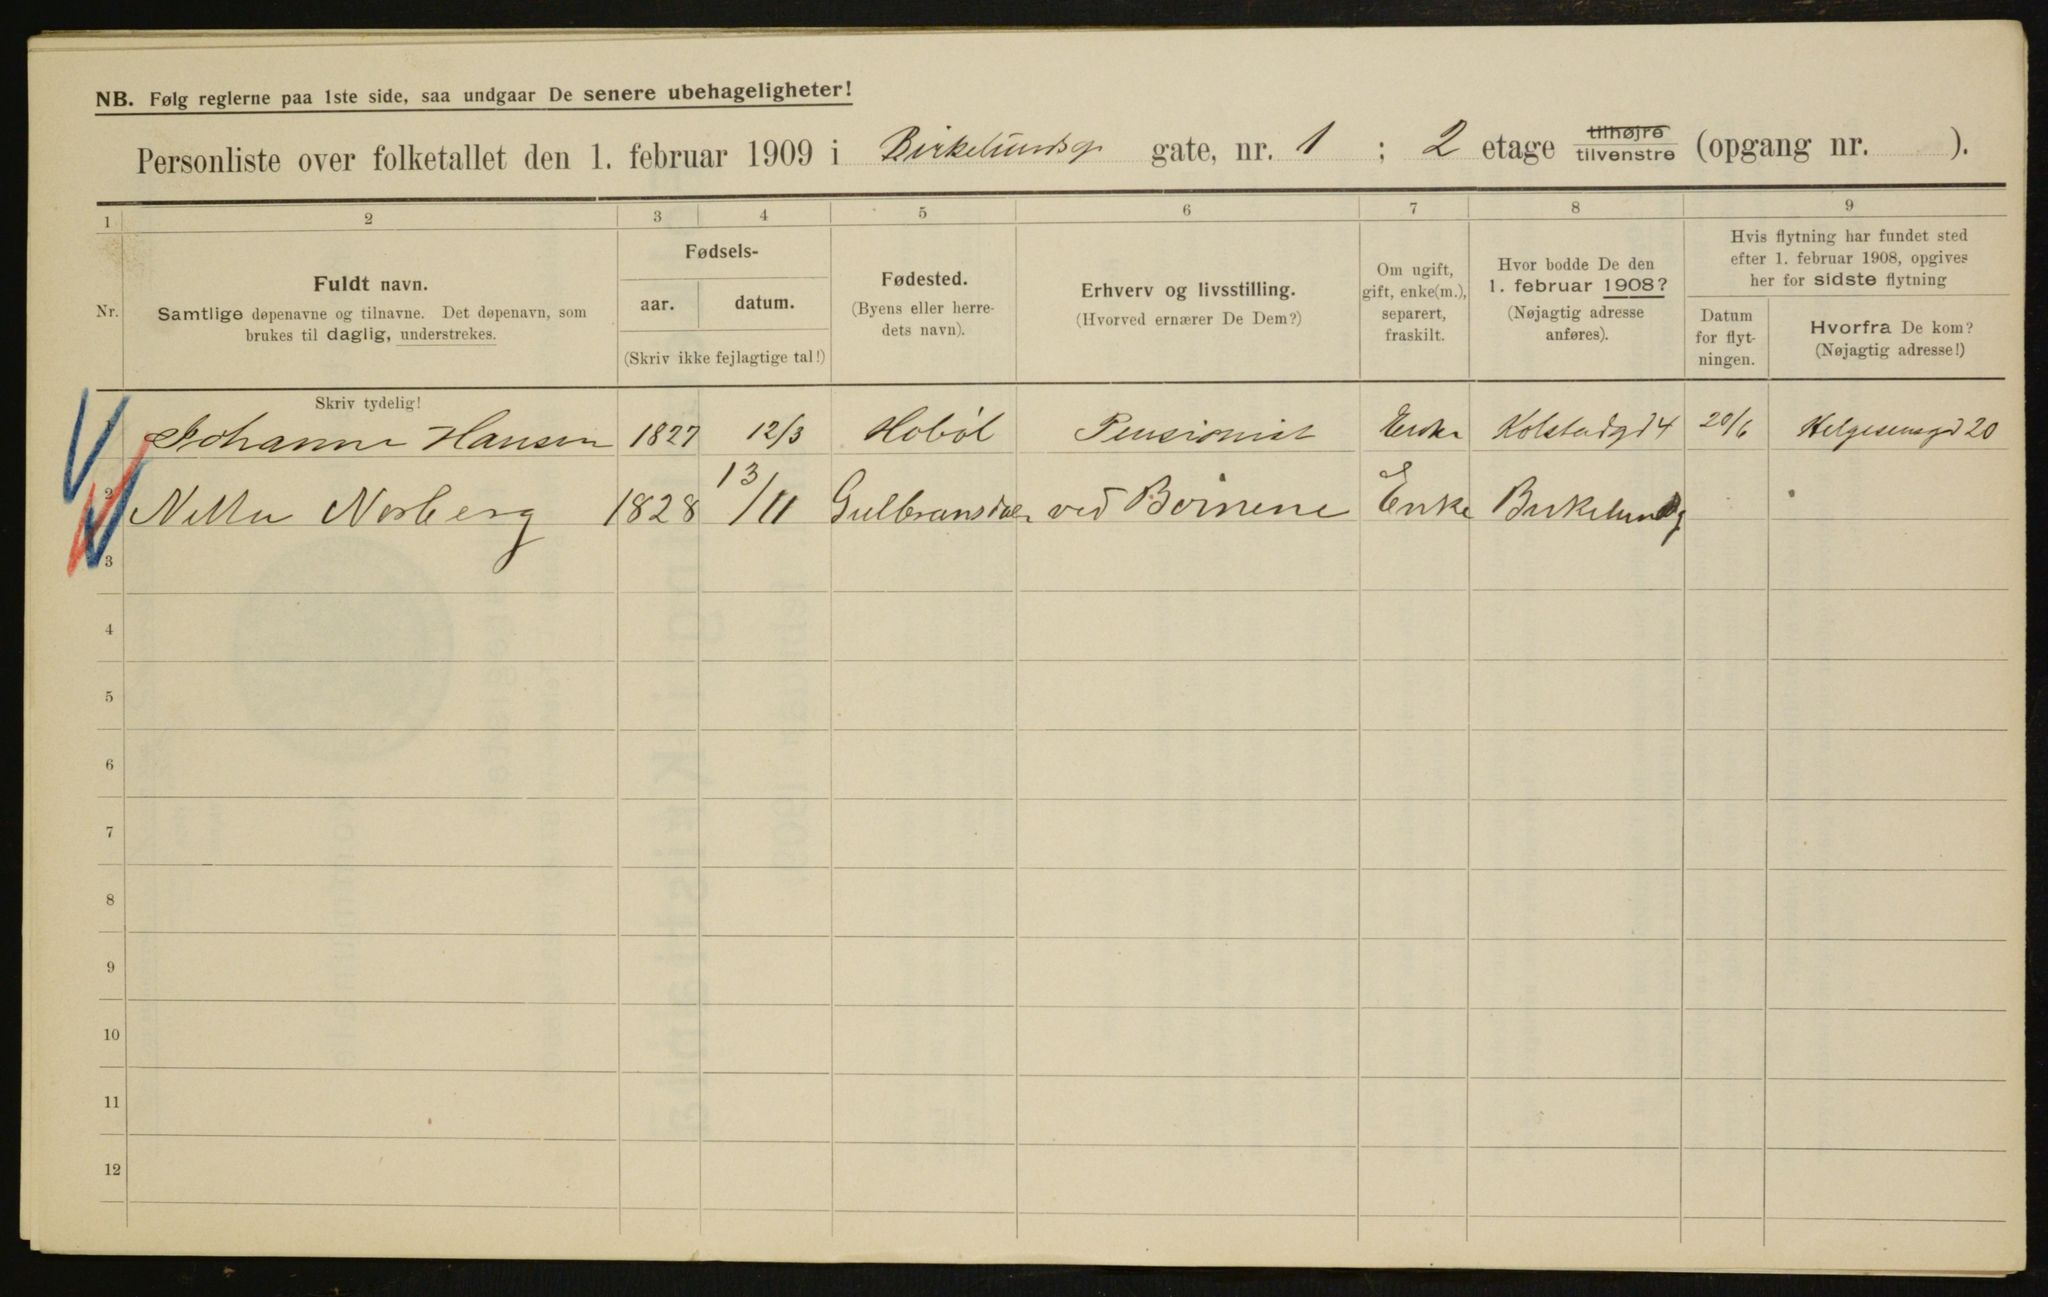 NB. Følg reglerne paa 1ste side, saa undgaar De senere ubehageligheter!
Personliste over folketallet den 1. februar 1909 i Birkelundsg. gate, nr. 1 ; 2 etage tilhøjre tilvenstre (opgang nr. ).
1 2 3 4 5 6 7 8 9
Nr.
Fuldt navn.
Samtlige døpenavne og tilnavne. Det døpenavn, som
brukes til daglig, understrekes.
Fødsels-
aar. datum.
(Skriv ikke fejlagtige tal!)
Fødested.
(Byens eller herre-
dets navn).
Erhverv og livsstilling.
(Hvorved ernærer De Dem?)
Om ugift,
gift, enke(m.),
separert,
fraskilt.
Hvor bodde De den
1. februar 1908?
(Nøjagtig adresse
anføres).
Hvis flytning har fundet sted
efter 1. februar 1908, opgives
her for sidste flytning
Datum
for flyt-
ningen.
Hvorfra De kom?
(Nøjagtig adresse!)
Skriv tydelig!
Johanne Hansen 1827 12/3 Hobøl Pensionist Enke Kolstadgd 4 20/6 Helgesensgd 20
2 Norberg 1828 13/11 Gulbransdalen ved Börnene Enke Birkelundg
3
4
5
6
7
8
9
10
11
12